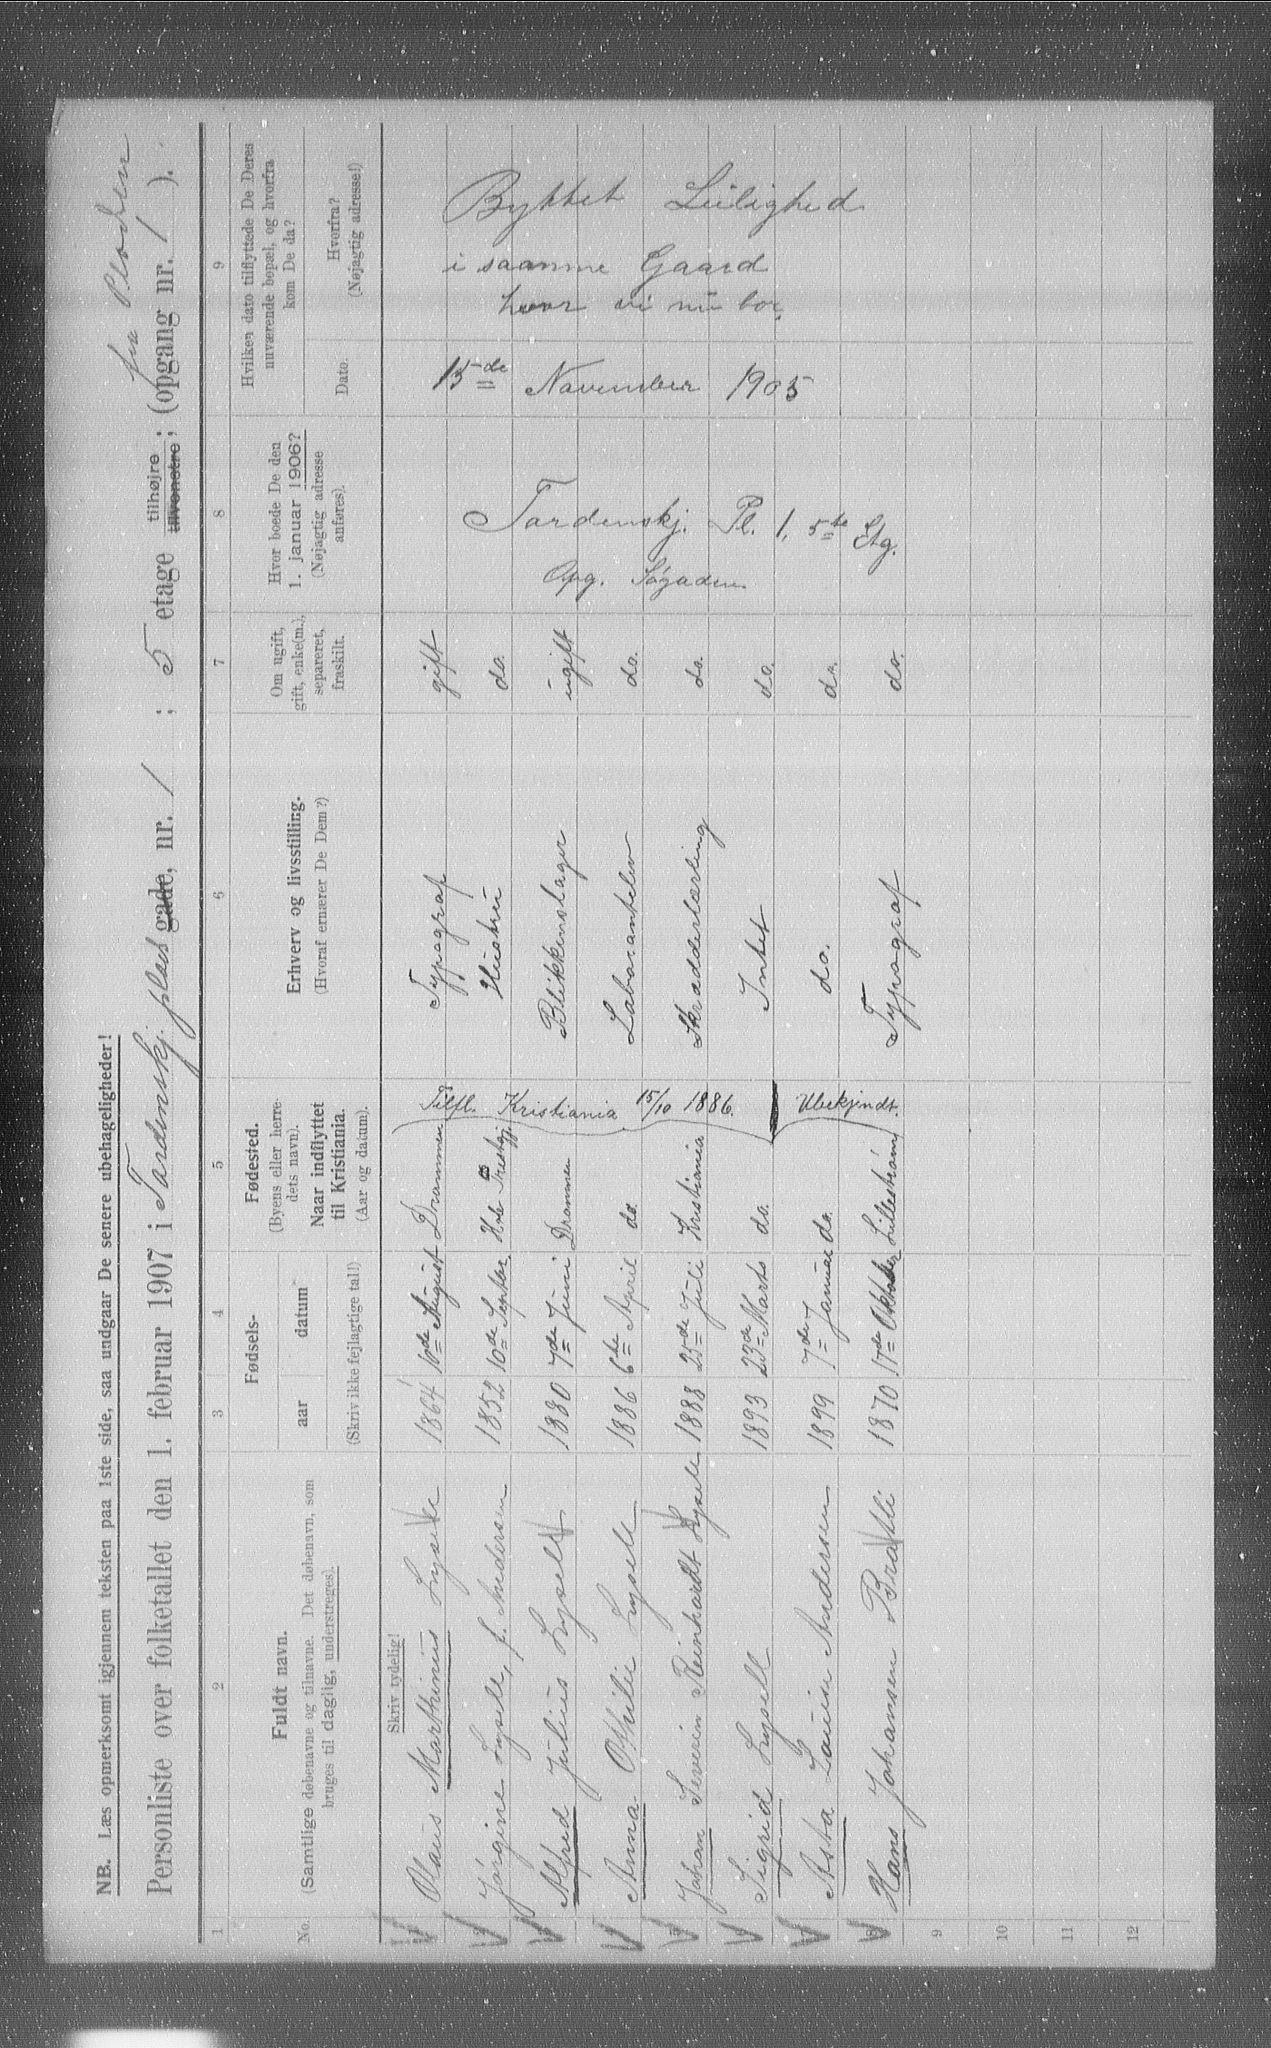 NB. Læs opmerksomt igjennem teksten paa 1ste side, saa undgaar De senere ubehageligheder!
fra Pladsen
Personliste over folketallet den 1. februar 1907 i Tordenskj. plads gade, nr. 1 ; 5 etage tilhøjre tilvenstre; (opgang nr. 1 ).
1 2 3 4 5 6 7 8 9
No.
Fuldt navn.
(Samtlige døbenavne og tilnavne. Det døbenavn, som
bruges til daglig, understreges).
Fødsels-
aar datum
(Skriv ikke fejlagtige tal!)
Fødested.
(Byens eller herre-
dets navn).
Naar indflyttet
til Kristiania.
(Aar og datum).
Erhverv og livsstilling.
(Hvoraf ernærer De Dem?)
Om ugift,
gift, enke(m.),
separeret,
fraskilt.
Hvor boede De den
1. januar 1906?
(Nøjagtig adresse
anføres).
Hvilken dato tilflyttede De Deres
nuværende bopæl, og hvorfra
kom De da?
Dato.
Hvorfra?
(Nøjagtig adresse!)
Skriv tydelig!
Olaus Marthinius Lysell 1864 10de August Drammen Typograf gift
Jørgine Lysell, f. Andersen 1852 10de Septbr. Hole Hustru do.
Alfred Julius Lysell 1880 7de Juni Drammen Blikkenslager ugift
Anna Othilie Lysell 1886 6te April do. Laborantelev do.
Johan Severin Reinhardt Lysell 1888 25de Juli Kristiania Skrædderlærling do.
Sigrid Lysell 1893 23de Marts do. Intet do.
Asta Lauise Andersen 1899 7de Januar do. do. do.
Hans Johansen Bratli 1870 17de Oktober Lillestrøm Typograf do.
9
10
11
12
Tilfl. Kristiania 15/10 1886.
Ubekjendt.
Tordenskj. Pl. 1, 5te Etg.
Opg. Søgaden
15de November 1905
Byttet Leilighed
i samme Gaard
hvor vi nu bor.